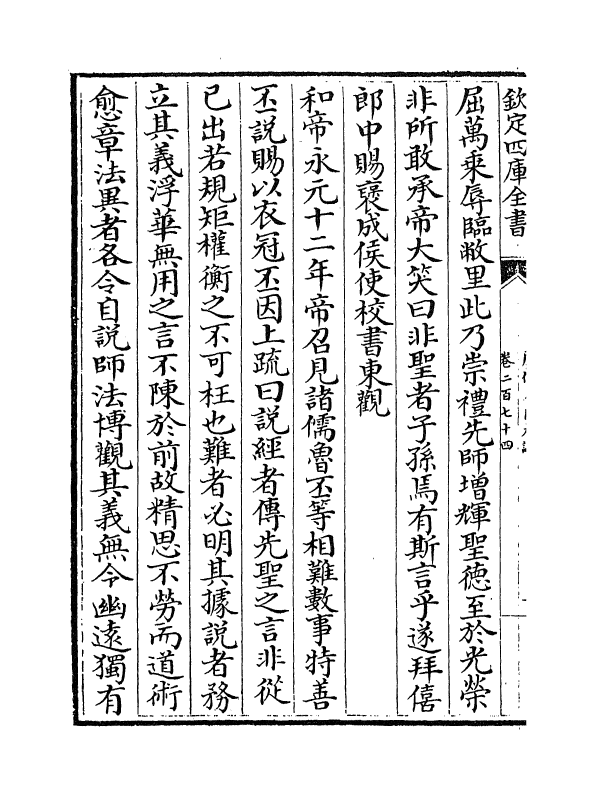 欽定四庫全書
卷二百七十四
屈萬乘辱臨敝里此乃崇禮先師增輝聖徳至於光榮
非所敢承帝大笑曰非聖者子孫焉有斯言乎遂拜僖
郎中賜襃成侯使校書東觀
和帝永元十二年帝召見諸儒魯丕等相難數事特善
丕說賜以衣冠丕因上疏曰說經者傳先聖之言非從
已出若規矩權衡之不可枉也難者必明其據說者務
立其義浮華無用之言不陳於前故精思不勞而道術
愈章法異者各令自說師法博觀其義無令幽遠獨有